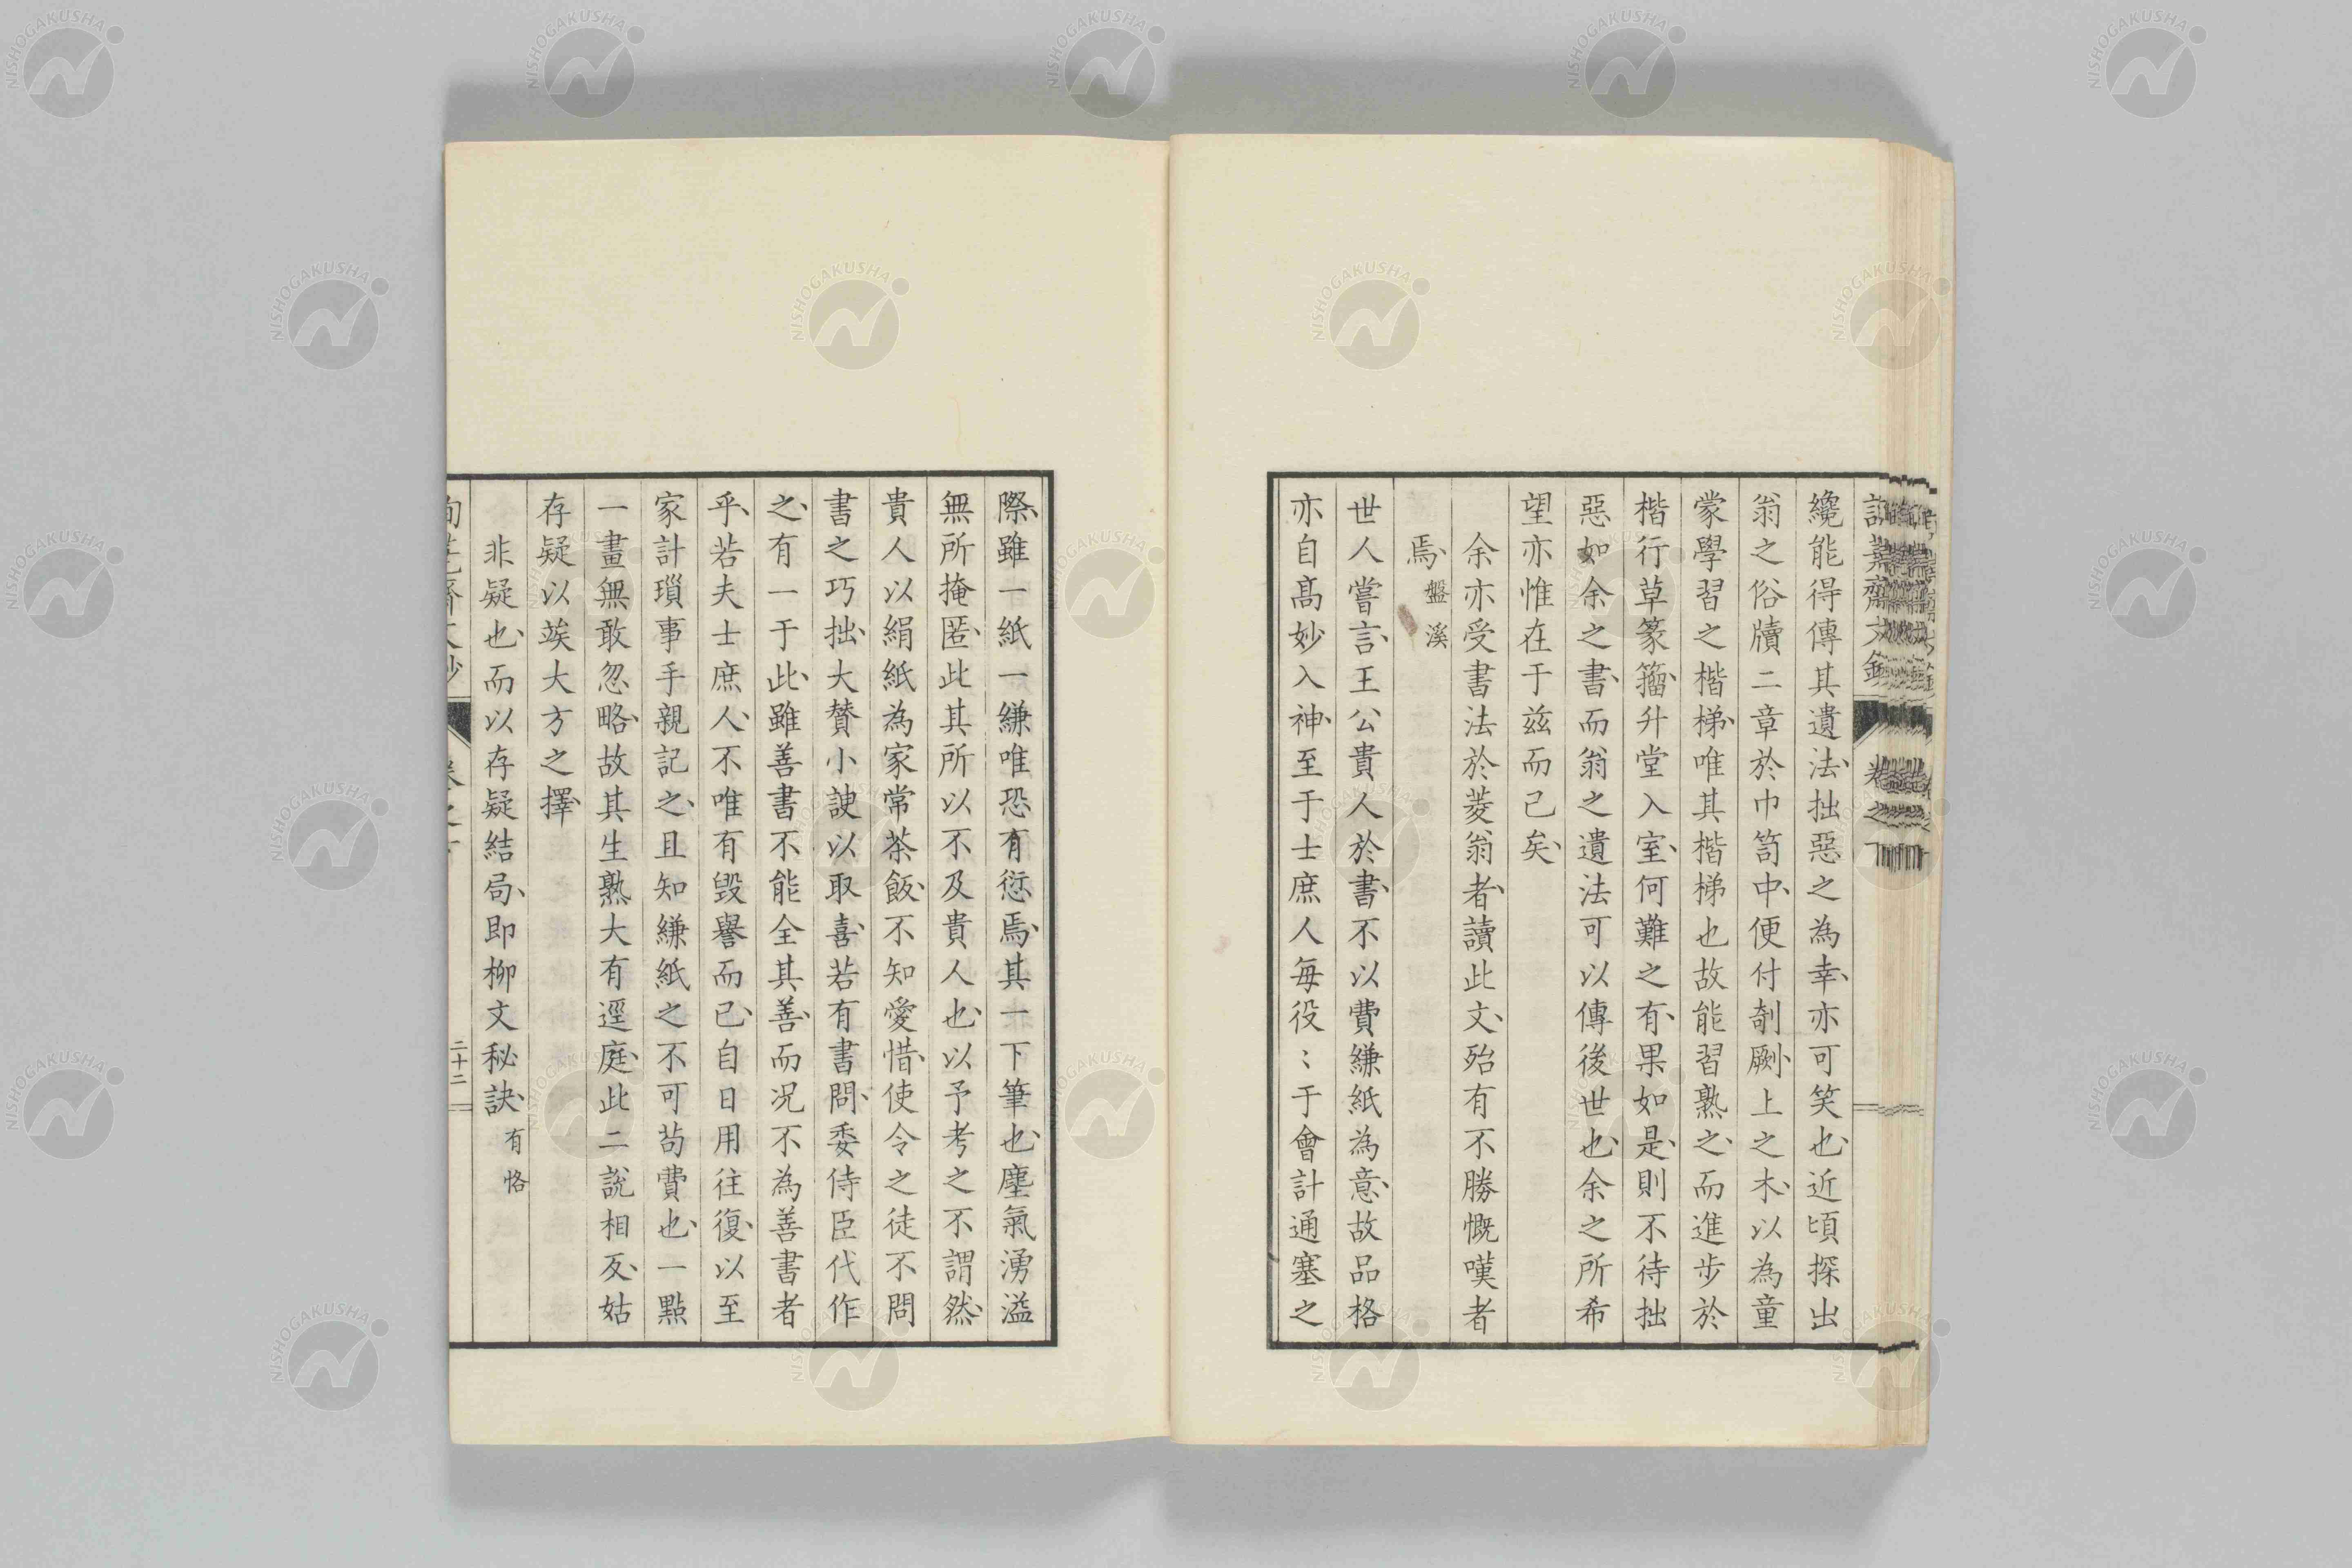 纔能得傳其遺法、拙惡之為幸、亦可笑也、近頃探出
翁之俗牘二章於巾笥中、便付剞劂、上之木、以為童
蒙學習之楷梯、唯其楷梯也故能習熟之、而進步於
楷行草篆籀、升堂入室、何難之有、果如是、則不待拙
惡如余之書、而翁之遺法可以傳後世也、余之所希
望亦惟在于茲而已矣、
余亦受書法於菱翁者、讀此文、殆有不勝慨嘆者
焉、盤溪
世人嘗言、王公貴人於書、不以費縑紙為意、故品格
亦自高妙入神、至于士庶人每役〻于會計通塞之
際、雖一紙一縑唯恐有愆焉、其一下筆也、塵氣湧溢
無所掩匿、此其所以不及貴人也、以予考之不謂然、
貴人以絹紙為家常茶飯、不知愛惜、使令之徒不問
書之巧拙、大贊小諛以取喜、若有書問、委侍臣代作
之、有一于此、雖善書不能全其善、而況不為善書者
乎、若夫士庶人、不唯有毀譽而已、自日用往復、以至
家計瑣事手親記之、且知縑紙之不可苟費也、一點
一畫無敢忽略、故其生熟大有逕庭、此二說相反、姑
存疑以竢大方之擇
非疑也、而以存疑結局、即柳文秘訣、有恪
二十二